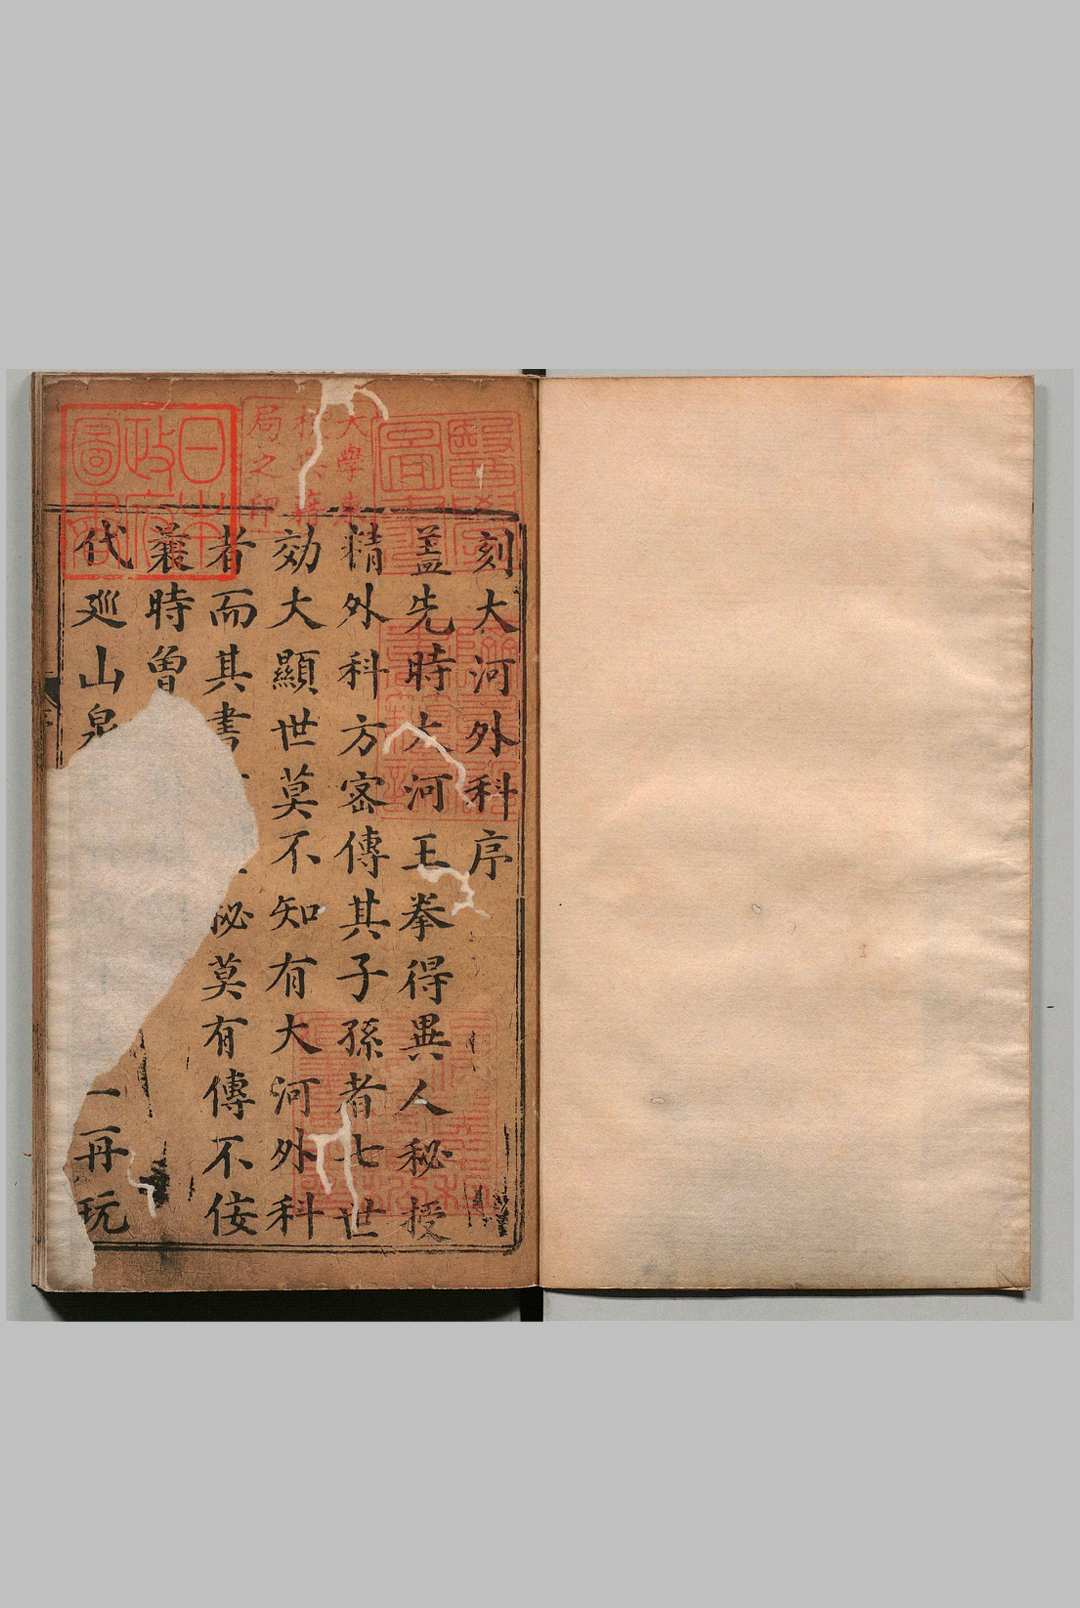 刻大河外科序
蓋先時大河王拳得異人秘授
精外科方密傳其子孫者七世
効大顯世莫不知有大河外科
者而其書秘莫有傳不佞
曩時曽
代廵山泉一再玩
日本政府圖書
大學東校典籍局之印
醫學圖書